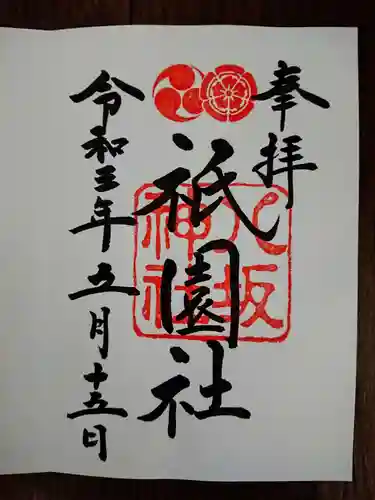 奉拝
八坂
神社
祇園社
令和三年五月十五日